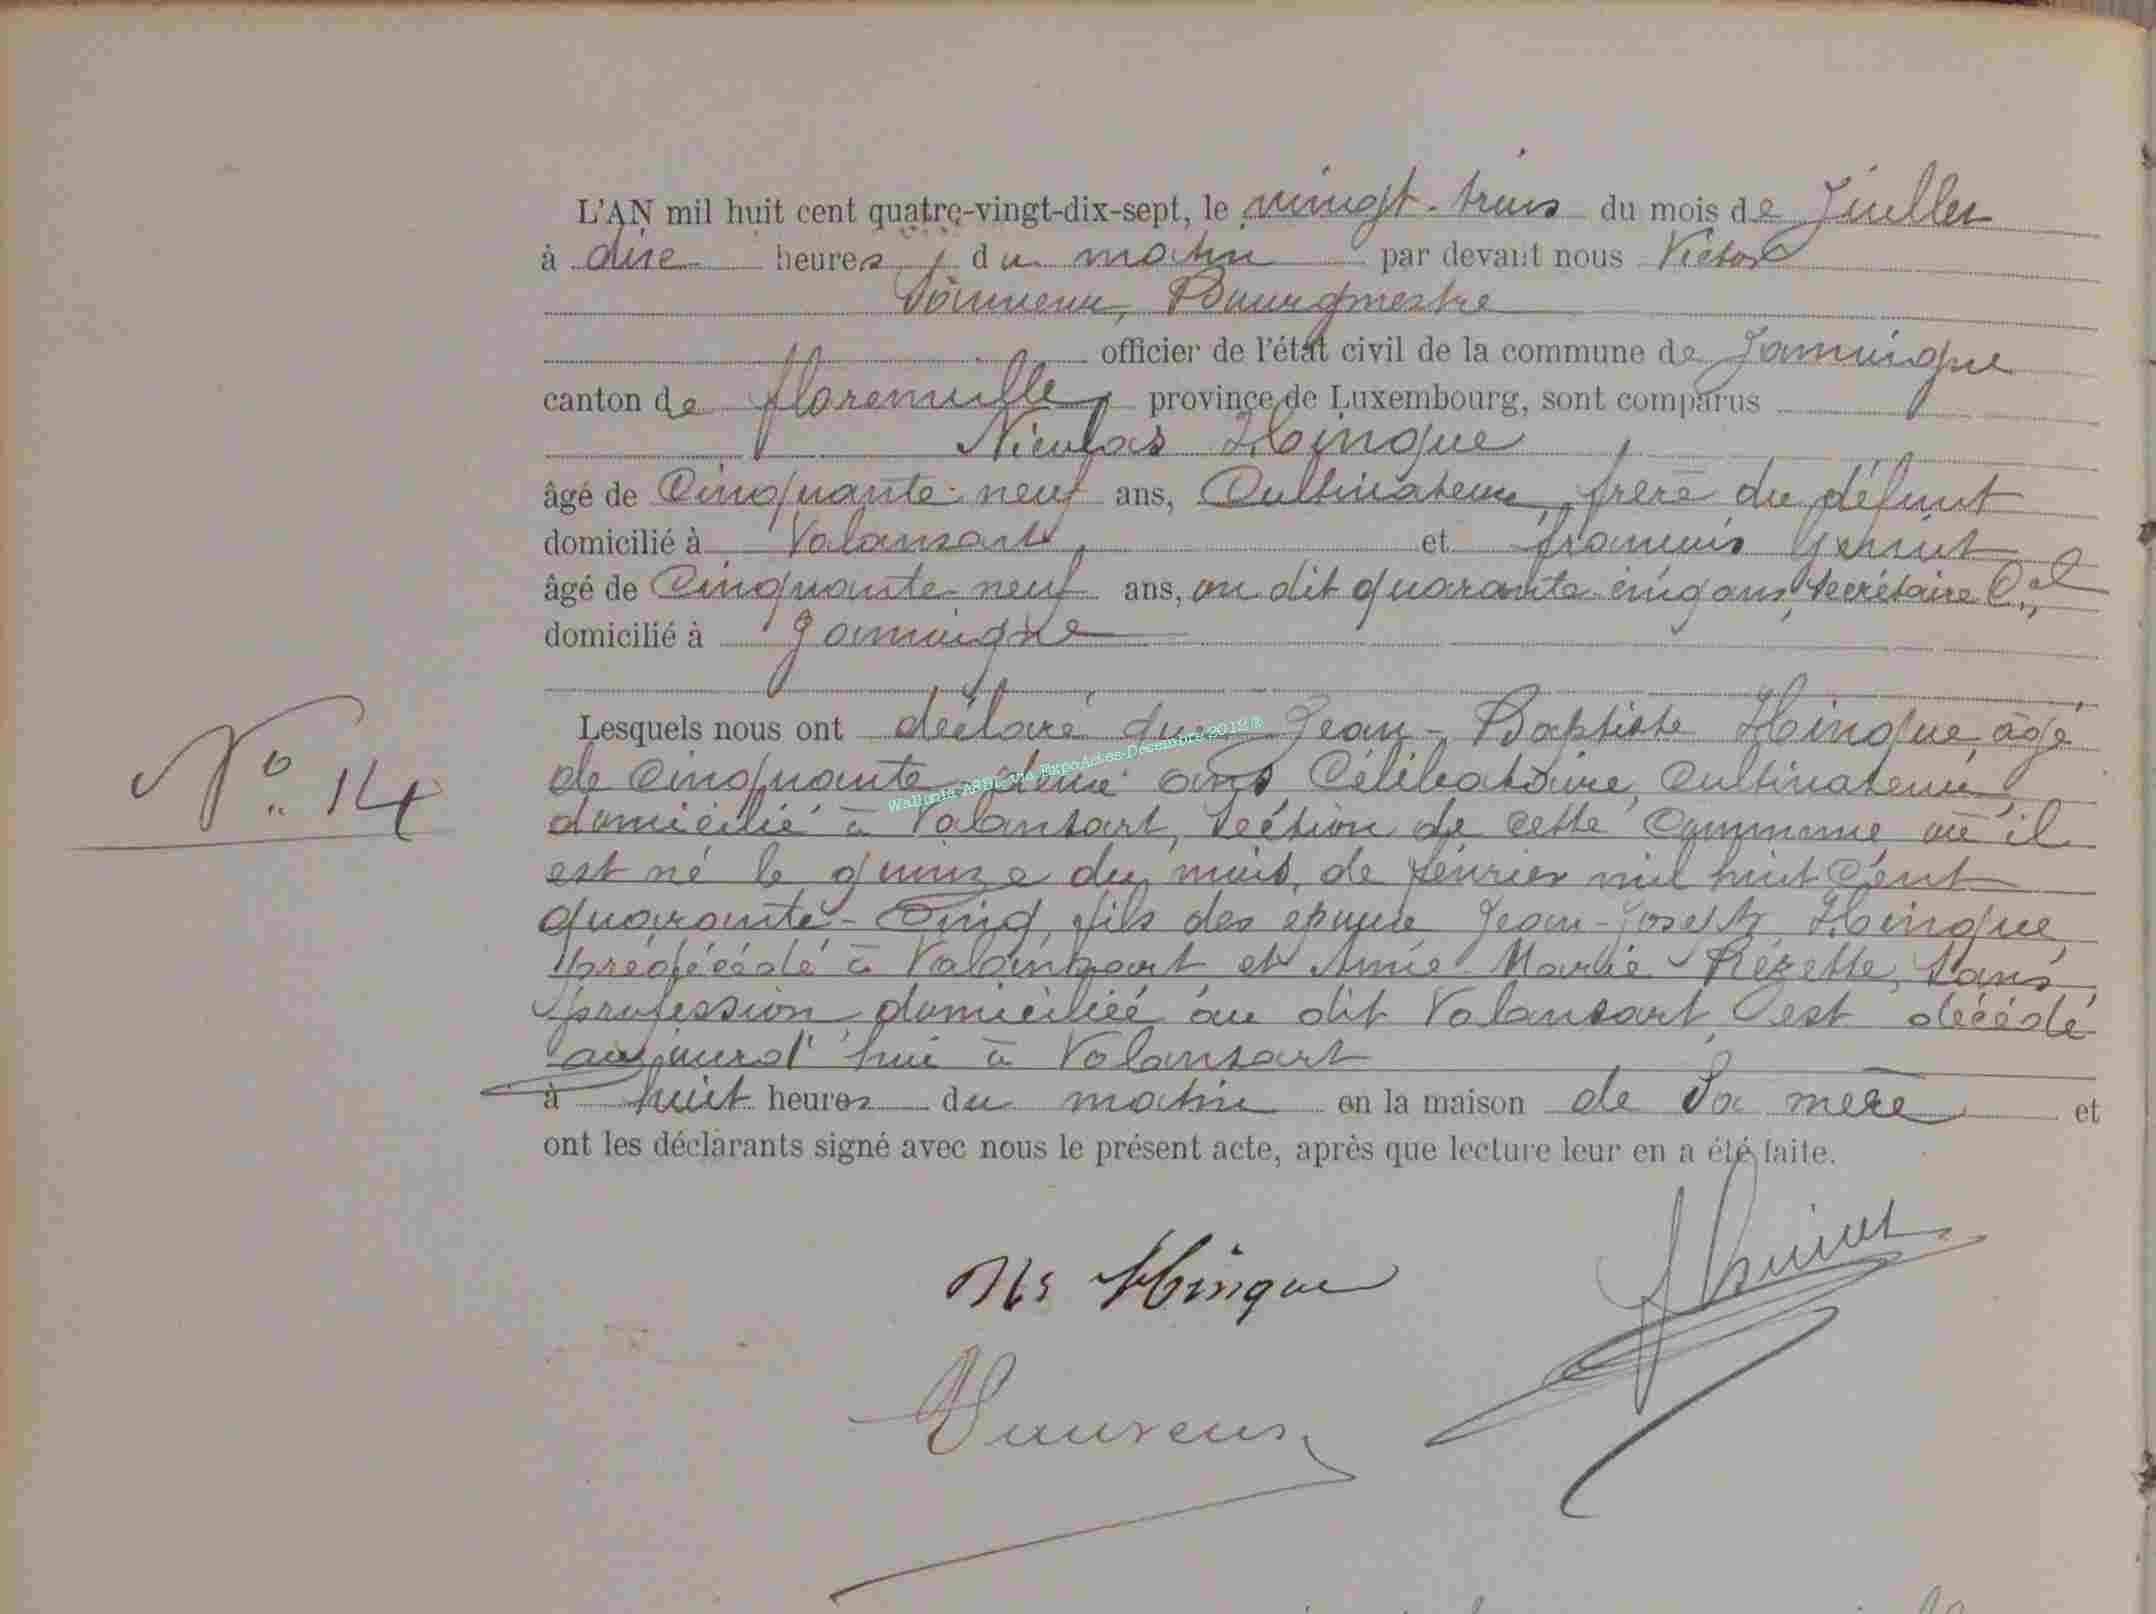 L'AN mil huit cent quatre-vingt-dix-sept, le vingt-trois du mois de Juillet
à dix heures, du matin par devant nous Victor
Bourgmestre
officier de l'état civil de la commune de Jamoigne
canton de florenville, province de Luxembourg, sont comparus
Nicolas Hinque
âgé de Cinquante-neuf ans, Cultivateur, frère du défunt
domicilié à Valansart, et françois
âgé de Cinquante-neuf ans, on dit quarante cinq ans, Secrétaire Cal
domicilié à Jamoigne
Lesquels nous ont déclaré que Jean-Baptiste Hinque, âgé
N° 14
de Cinquante-deux ans Célibataire, Cultivateur,
domicilié à Valansart, Section de cette Commune, où il
est né le quinze du mois de février mil huit Cent
quarante-Cinq, fils des époux Jean-Joseph Hinque,
prédécédé à Valansart et Anne Marie Rézette, sans
profession domiciliée au dit Valansart, est décédé
aujourd'hui à Valansart
à huit heures du matin en la maison de Sa mère et
ont les déclarants signé avec nous le présent acte, après que lecture leur en a été faite.
Nls Hinque
Wallonia ASBL via ExpoActes-Décembre 2012 ®